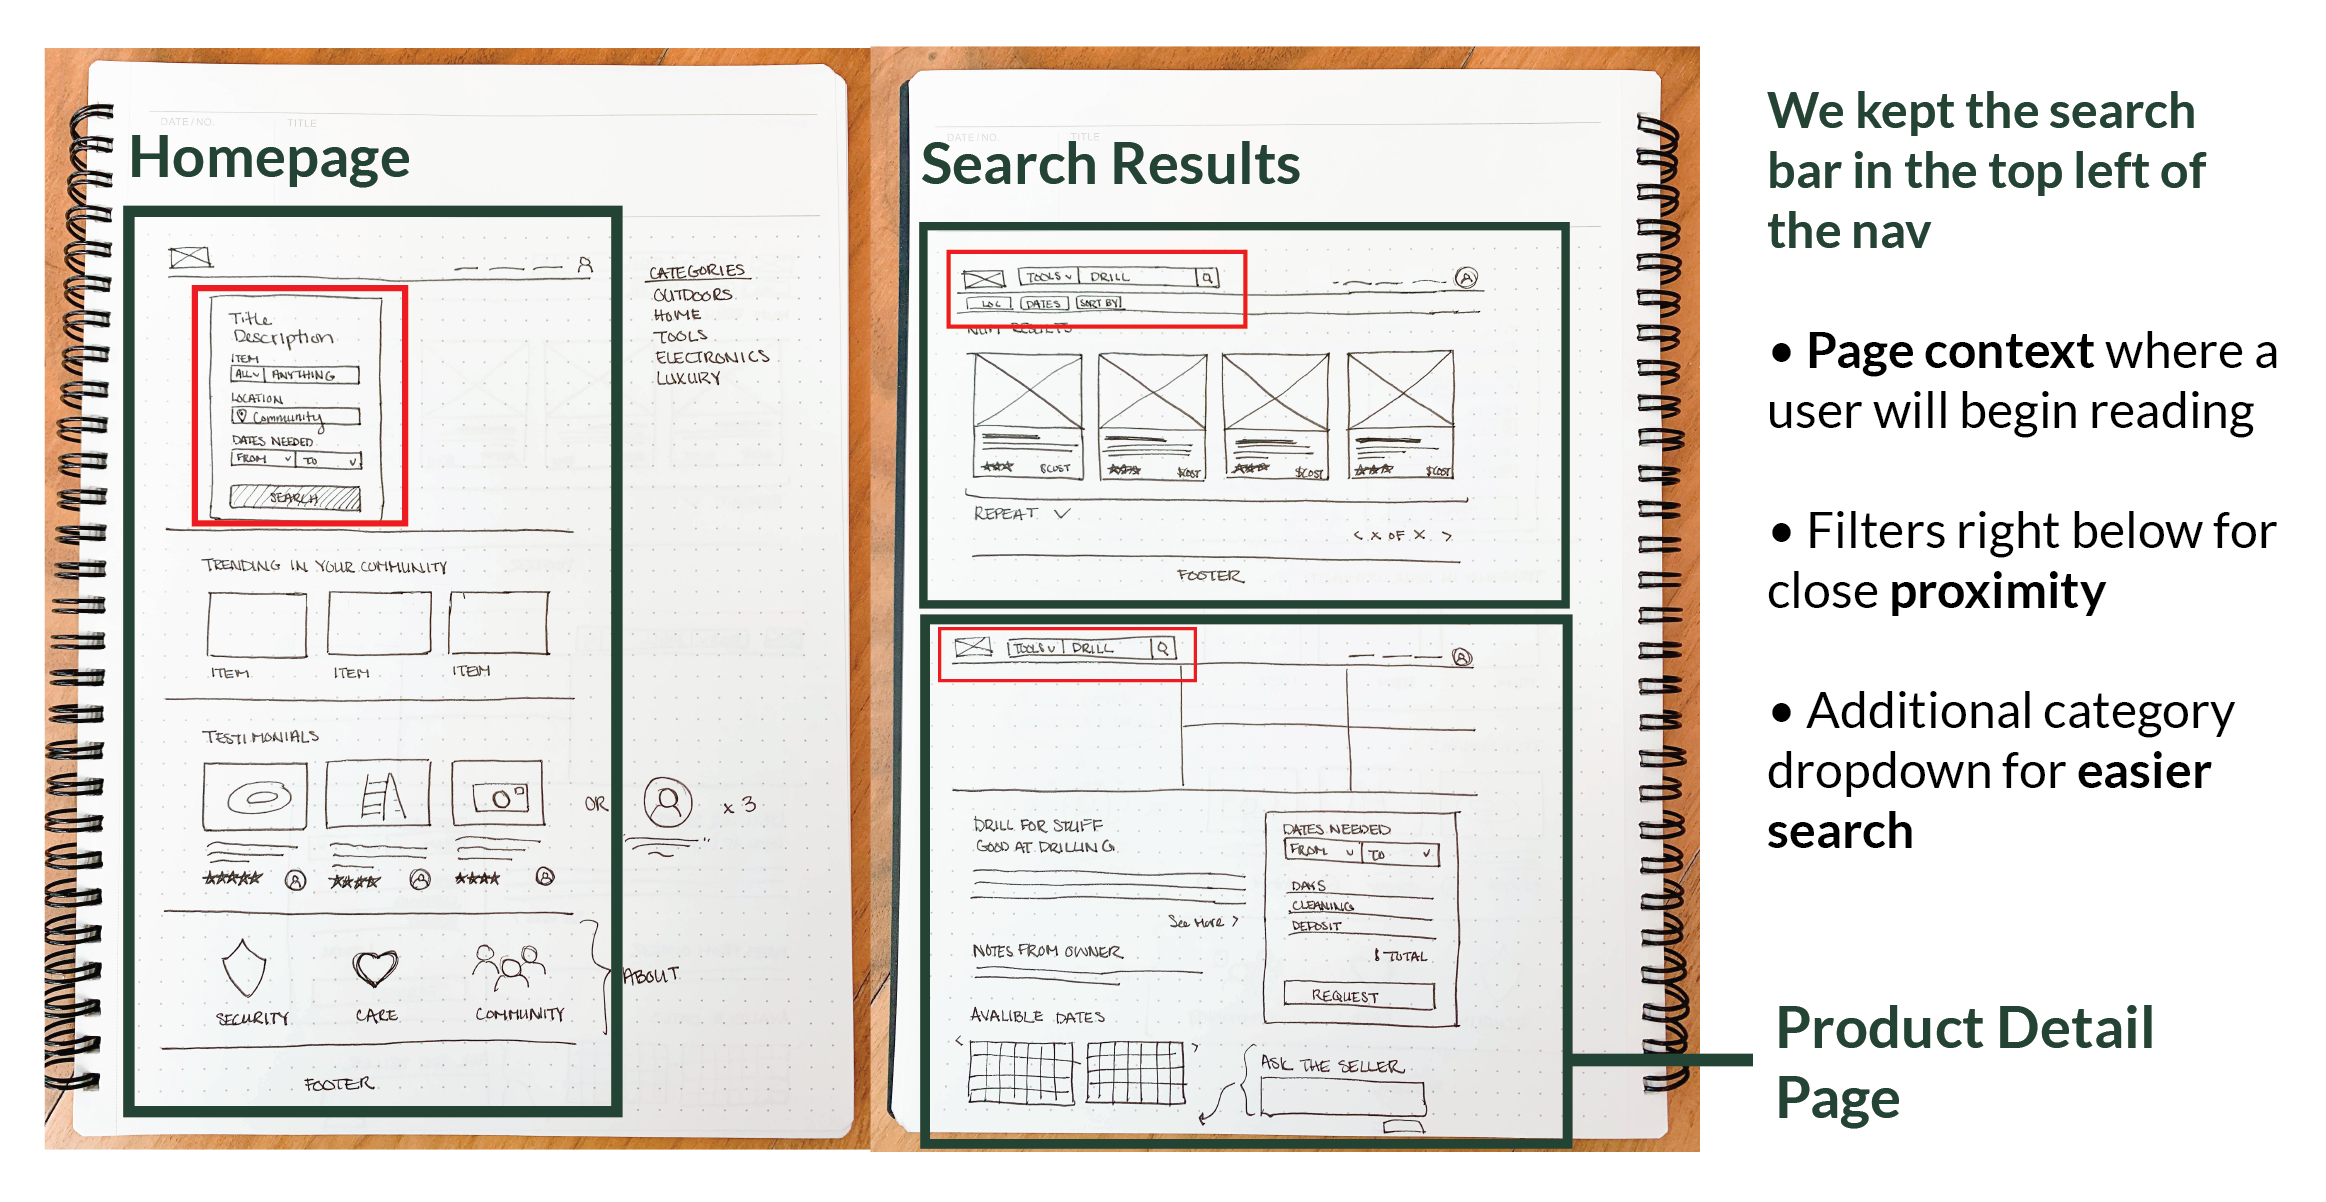 DATE/NO. TITLE
Homepage
CATEGORIES
OUTDOORS
HOME
TOOLS
ELECTRONICS
LUXURY
Title
Description
ITEM
ALL ANYTHING
LOCATION
Community
DATES NEEDED
FROM TO
SEARCH
TRENDING IN YOUR COMMUNITY
ITEM ITEM ITEM
TESTIMONIALS
OR x 3
SECURITY CARE COMMUNITY
ABOUT
FOOTER
DATE/NO. TITLE
Search Results
TOOLS DRILL
LOC DATES SORT BY
NUM RESULTS
$COST $COST $COST $COST
REPEAT
< X OF X >
FOOTER
TOOLS DRILL
DRILL FOR STUFF
GOOD AT DRILLING
See More >
NOTES FROM OWNER
AVALIBLE DATES
< >
DATES NEEDED
FROM TO
DAYS
CLEANING
DEPOSIT
$ TOTAL
REQUEST
ASK THE SELLER
We kept the search
bar in the top left of
the nav
• Page context where a
user will begin reading
• Filters right below for
close proximity
• Additional category
dropdown for easier
search
Product Detail
Page